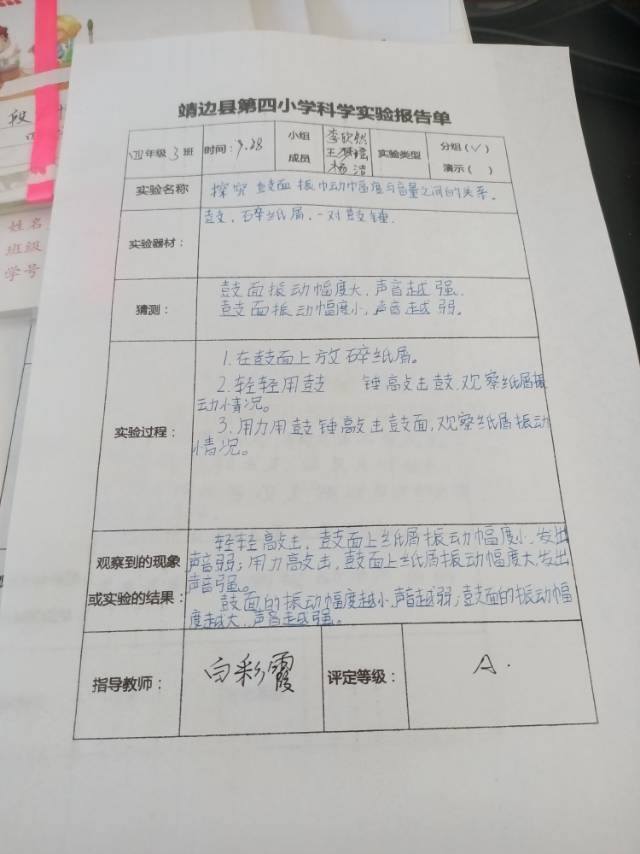 段
姓名
班级
学号
靖边县第四小学科学实验报告单
四年级 3 班 时间：9.28 小组成员 李欣然 王梦 杨洁 实验类型 分组（√） 演示（ ）
实验名称 探究鼓面振巾动幅度与音量之间的关系。
实验器材： 鼓、碎纸屑、一对鼓锤.
猜测： 鼓面振动幅度大，声音越强.
鼓面振动幅度小，声音越弱。
实验过程： 1.在鼓面上放碎纸屑。
2.轻轻用鼓 锤敲击鼓.观察纸屑振
动情况。
3.用力用鼓锤敲击鼓面，观察纸屑振动
情况。
观察到的现象
或实验的结果：
轻轻敲击，鼓面上纸屑振动幅度小，发出
声音弱；用力敲击，鼓面上纸屑振动幅度大，发出
声音强。
鼓面的振动幅度越小，声音越弱；鼓面的振动幅
度越大，声音越强。
指导教师： 白彩霞 评定等级： A.